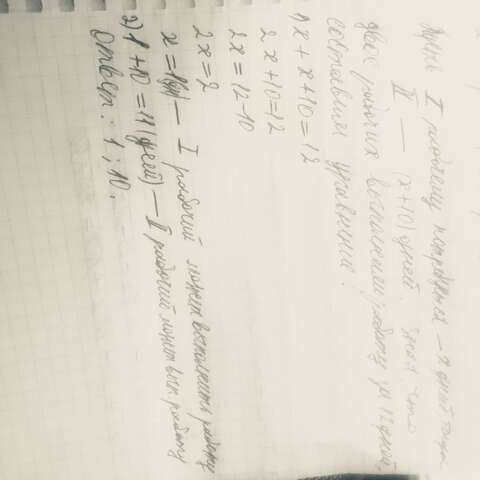 I рабочему потребуется — x дней, тогда
II — (x+10) дней. Зная, что
двое рабочих выполнили работу за 12 дней,
составим уравнение:
1) x + x + 10 = 12
2x + 10 = 12
2x = 12 - 10
2x = 2
x = 1(д) — I рабочий может выполнить работу
2) 1 + 10 = 11 (дней) — II рабочий может вып. работу
Ответ: 1 ; 10.